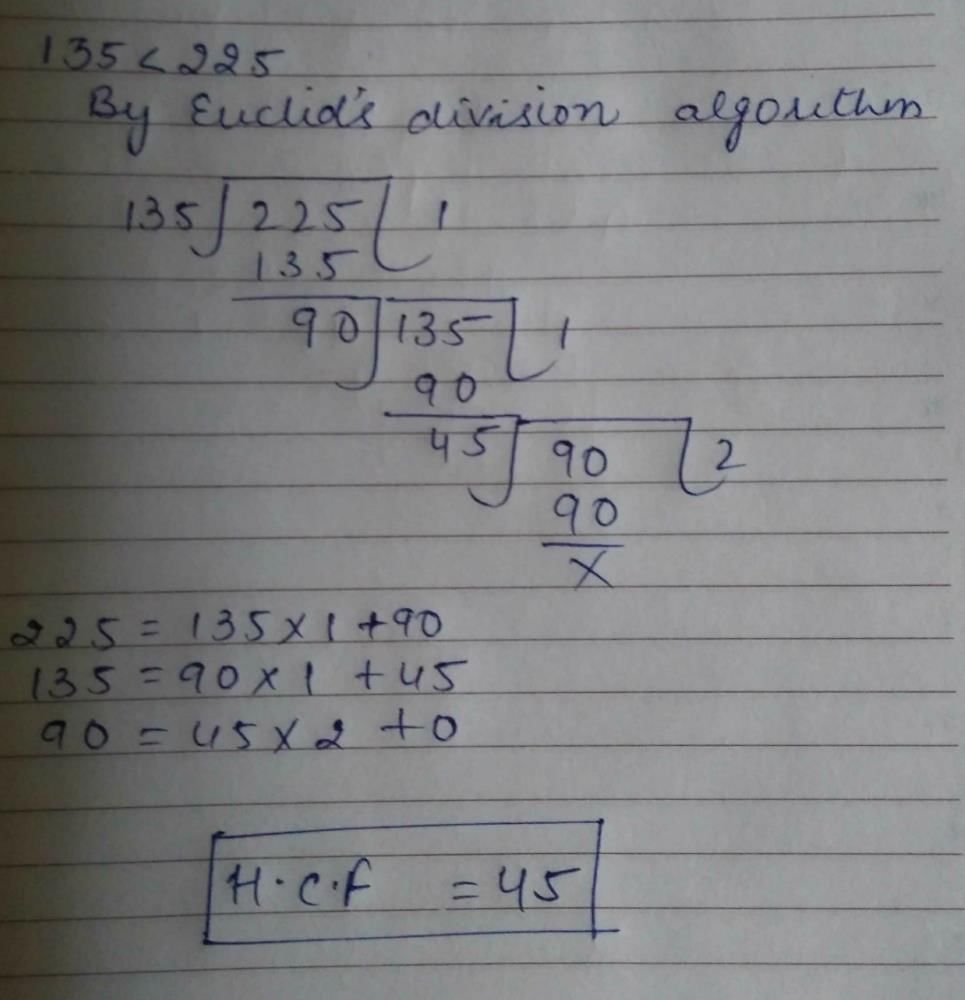 135 < 225
By Euclid's division algorithm
135 225 1
135
90 135 1
90
45 90 2
90
x
225 = 135 x 1 + 90
135 = 90 x 1 + 45
90 = 45 x 2 + 0
H.C.F = 45